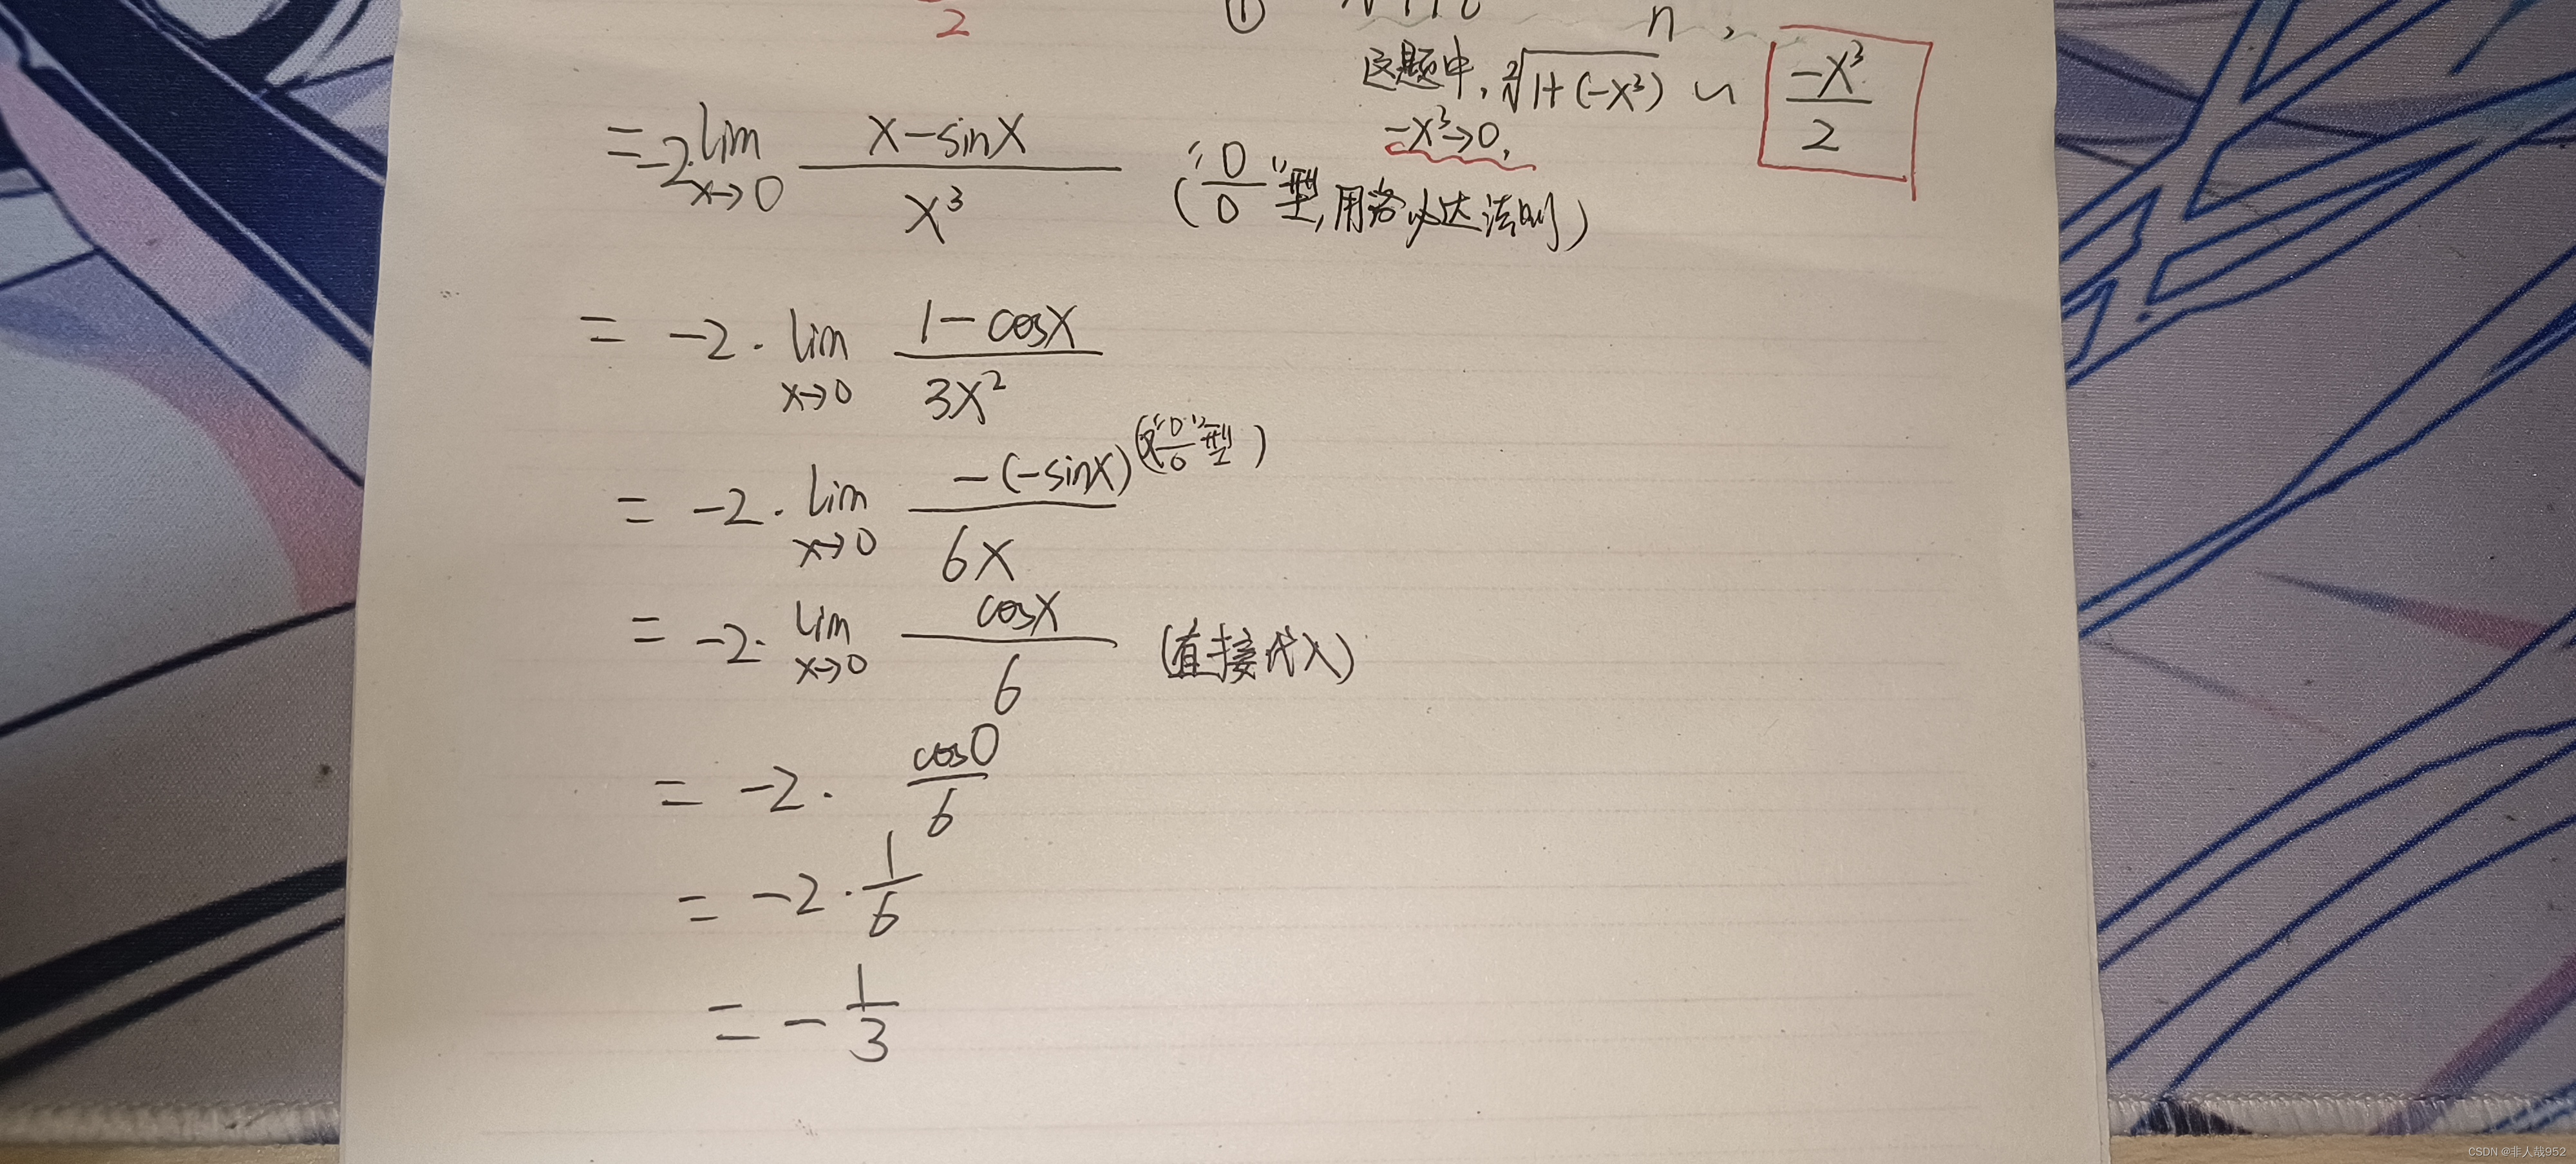 2 ① n ,
这题中, ²√1+(-x³) ∽ -x³/2
-x³→0,
= -2 lim x→0 x-sinx / x³ ("0/0"型, 用洛必达法则)
= -2 · lim x→0 1-cosx / 3x²
= -2 · lim x→0 -(-sinx) / 6x ("0/0"型)
= -2 · lim x→0 cosx / 6 (直接代入)
= -2 · cos0 / 6
= -2 · 1/6
= - 1/3
CSDN @非人哉952